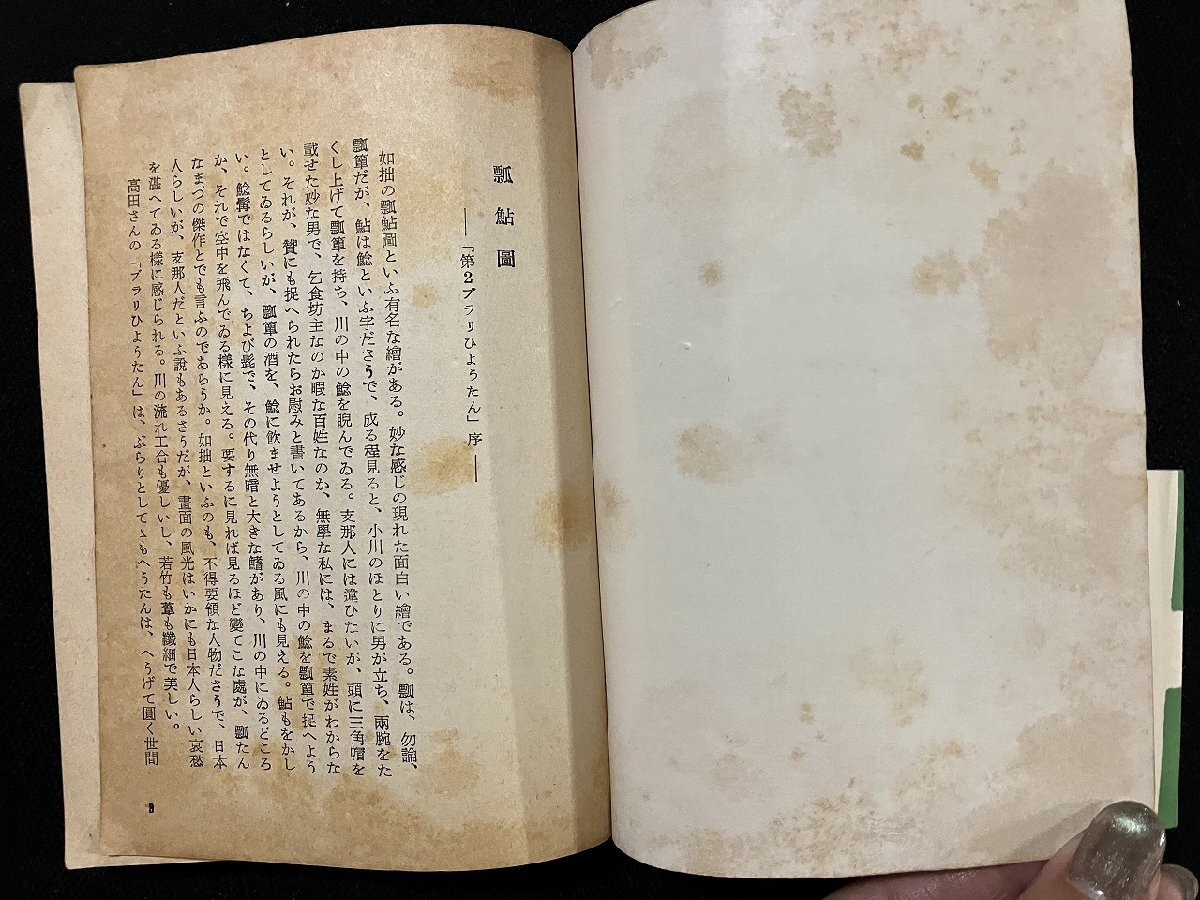 瓢鮎圖
──「第2ブラリひようたん」序──
如拙の瓢鮎圖といふ有名な繪がある。妙な感じの現れた面白い繪である。瓢は、勿論、
瓢簞だが、鮎は鯰といふ字ださうで、成る程見ると、小川のほとりに男が立ち、兩腕をた
くし上げて瓢簞を持ち、川の中の鯰を睨んでゐる。支那人には違ひたいが、頭に三角帽を
載せた妙な男で、乞食坊主なのか暇な百姓なのか、無學な私には、まるで素姓がわからな
い。それが、贊にも捉へられたらお慰みと書いてあるから、川の中の鯰を瓢簞で捉へよう
としてゐるらしいが、瓢簞の酒を、鯰に飮ませようとしてゐる風にも見える。鮎もをかし
い。鯰髯ではなくて、ちよび髭で、その代り無暗と大きな鰭があり、川の中にゐるどころ
か、それで空中を飛んでゐる樣に見える。要するに見れば見るほど變てこな處が、瓢たん
なまづの傑作とでも言ふのであらうか。如拙といふのも、不得要領な人物ださうで、日本
人らしいが、支那人だといふ說もあるさうだが、畫面の風光はいかにも日本人らしい哀愁
を湛へてゐる樣に感じられる。川の流れ工合も優しいし、若竹も葦も纖細で美しい。
高田さんの「ブラリひようたん」は、ぶらりとしてゝもへうたんは、へうげて圓く世間